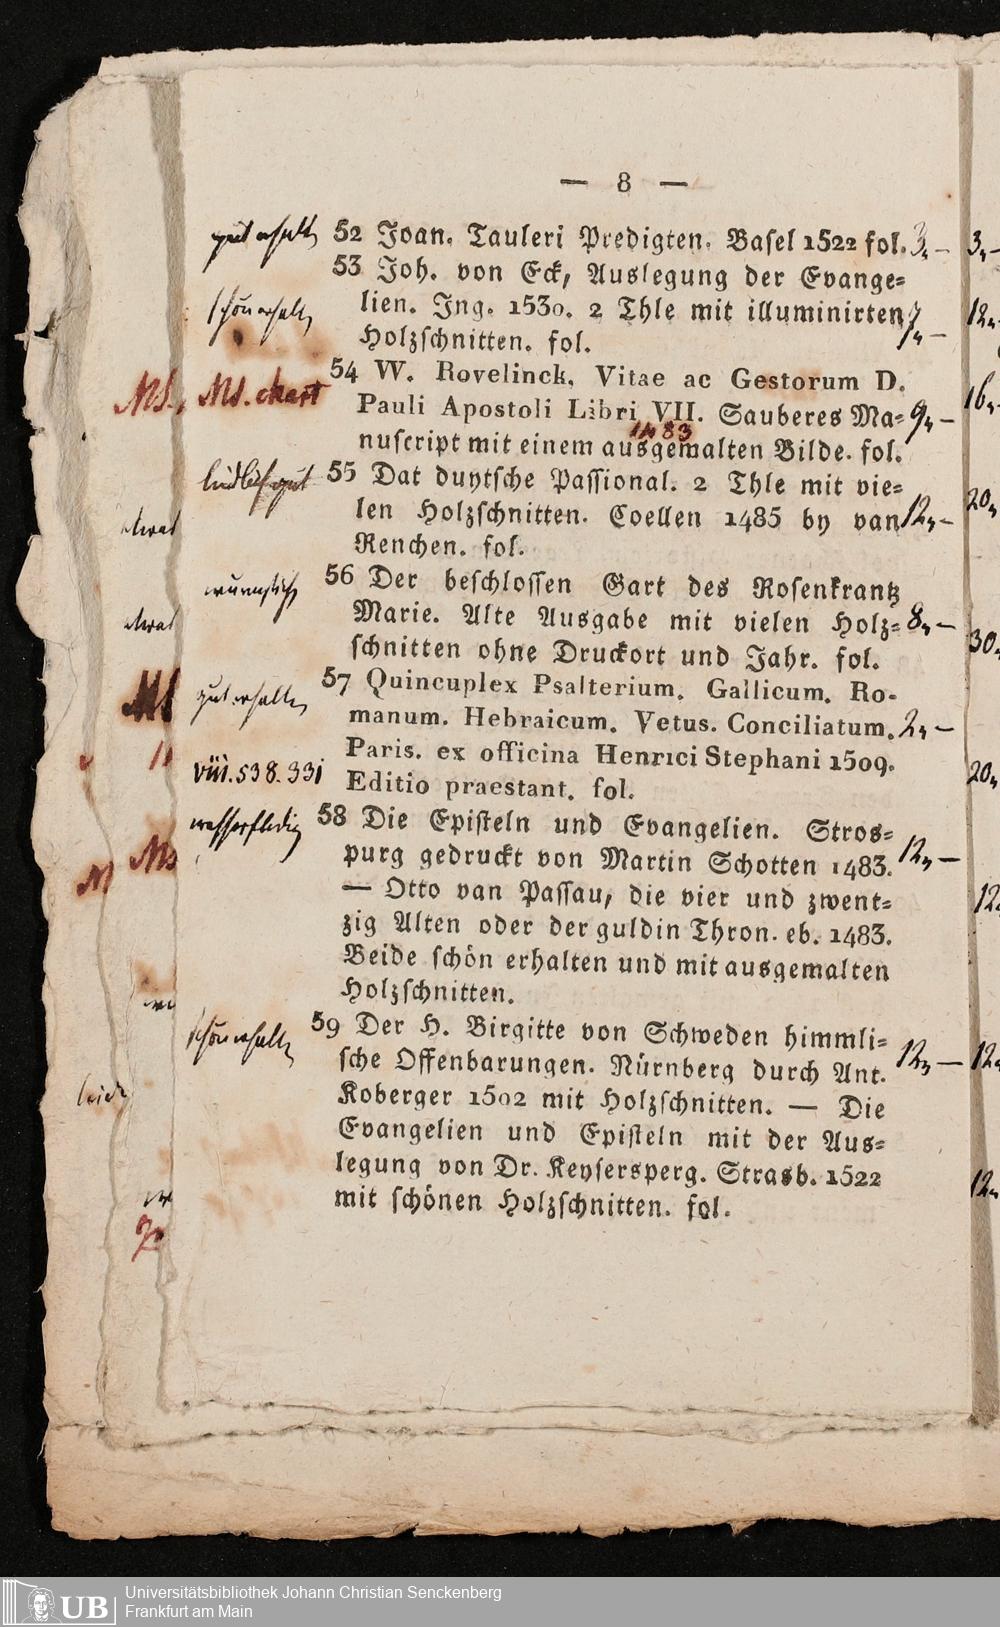 — 8 —
gut erhalt. 52 Joan. Tauleri Predigten. Basel 1522 fol. 3
53 Joh. von Eck, Auslegung der Evange=
schön erhalt. lien. Ing. 1530. 2 Thle mit illuminirten 7
Holzschnitten. fol.
MS. MS. chart 54 W. Rovelinck, Vitae ac Gestorum D.
Pauli Apostoli Libri VII. Sauberes Ma= 9
1483
nuscript mit einem ausgemalten Bilde. fol.
55 Dat duytsche Passional. 2 Thle mit vie=
len Holzschnitten. Coellen 1485 by van 12
Renchen. fol.
56 Der beschlossen Gart des Rosenkrantz
Marie. Alte Ausgabe mit vielen Holz= 8
schnitten ohne Druckort und Jahr. fol.
gut erhalten 57 Quincuplex Psalterium. Gallicum. Ro-
manum. Hebraicum. Vetus. Conciliatum. 2
Paris. ex officina Henrici Stephani 1509.
VIII. 538. 331 Editio praestant. fol.
wasserfledig 58 Die Episteln und Evangelien. Stros=
purg gedruckt von Martin Schotten 1483. 12
— Otto van Passau, die vier und zwent=
zig Alten oder der guldin Thron. eb. 1483.
Beide schön erhalten und mit ausgemalten
Holzschnitten.
schön erhalt. 59 Der H. Birgitte von Schweden himmli=
sche Offenbarungen. Nürnberg durch Ant. 12
Koberger 1502 mit Holzschnitten. — Die
Evangelien und Episteln mit der Aus=
legung von Dr. Keysersperg. Strasb. 1522
mit schönen Holzschnitten. fol.
3
12
16
20
30
20
12
12
12
UB
Universitätsbibliothek Johann Christian Senckenberg
Frankfurt am Main